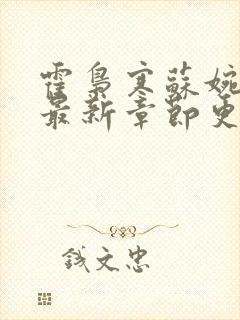 霍梟寒蘇婉
最新章節更
錢文忠